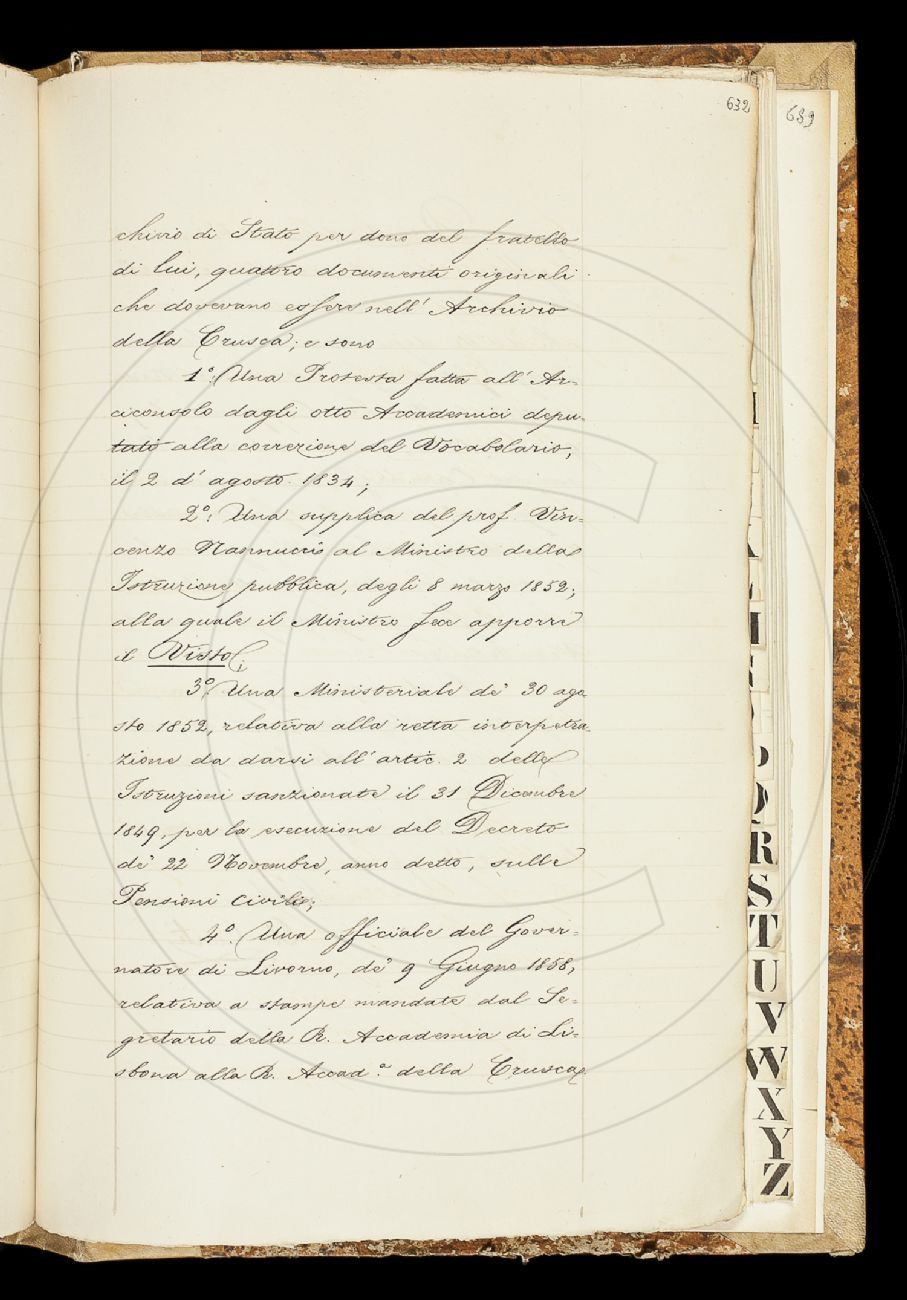 632
689
chivio di Stato per dono del fratello
di lui, quattro documenti originali
che dovevano essere nell' Archivio
della Crusca; e sono
1º: Una Protesta fatta all' Ar-
ciconsolo dagli otto Accademici depu-
tati alla correzione del Vocabolario,
il 2 d' agosto 1834;
2º: Una supplica del prof. Vin-
cenzo Nannucci al Ministro della
Istruzione pubblica, degli 8 marzo 1852;
alla quale il Ministro fece apporre
il Visto;
3º: Una Ministeriale de' 30 ago-
sto 1852, relativa alla retta interpetra-
zione da darsi all' artic. 2 delle
Istruzioni sanzionate il 31 Dicembre
1849, per la esecuzione del Decreto
de' 22 Novembre, anno detto, sulle
Pensioni civili;
4º. Una officiale del Gover-
natore di Livorno, de' 9 Giugno 1858,
relativa a stampe mandate dal Se-
gretario della R. Accademia di Li-
sbona alla R. Accad.ª della Crusca
Q
R
S
T
U
V
W
X
Y
Z